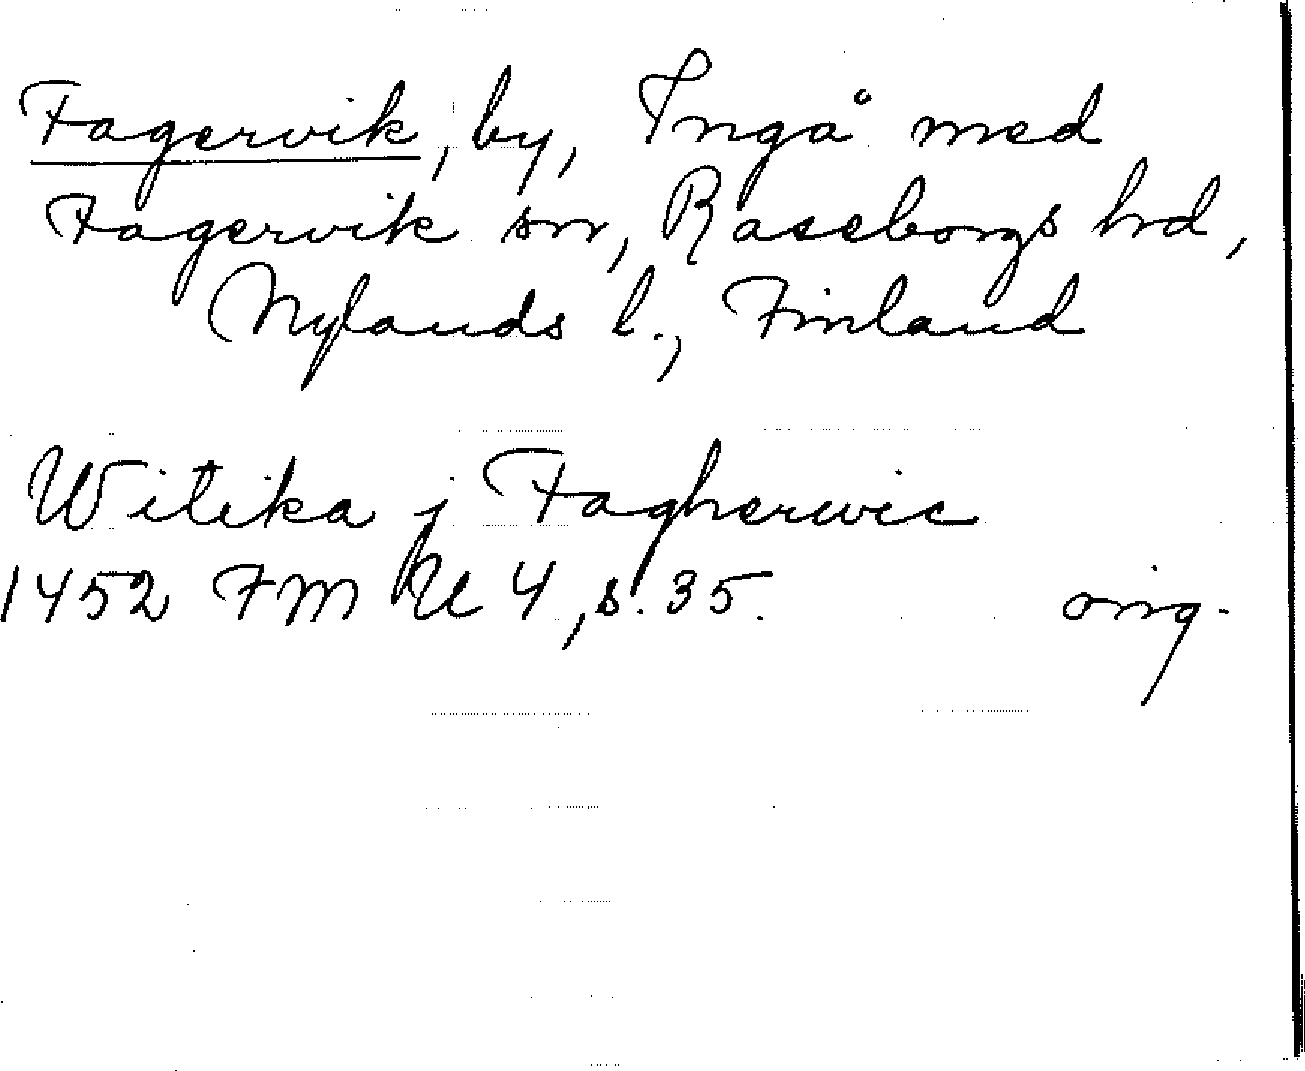 Fagervik, by, Ingå med
Fagervik sn, Raseborgs hrd,
Nylands l., Finland
Witika j Fagherwic
1452 FMU 4, s. 35. orig.